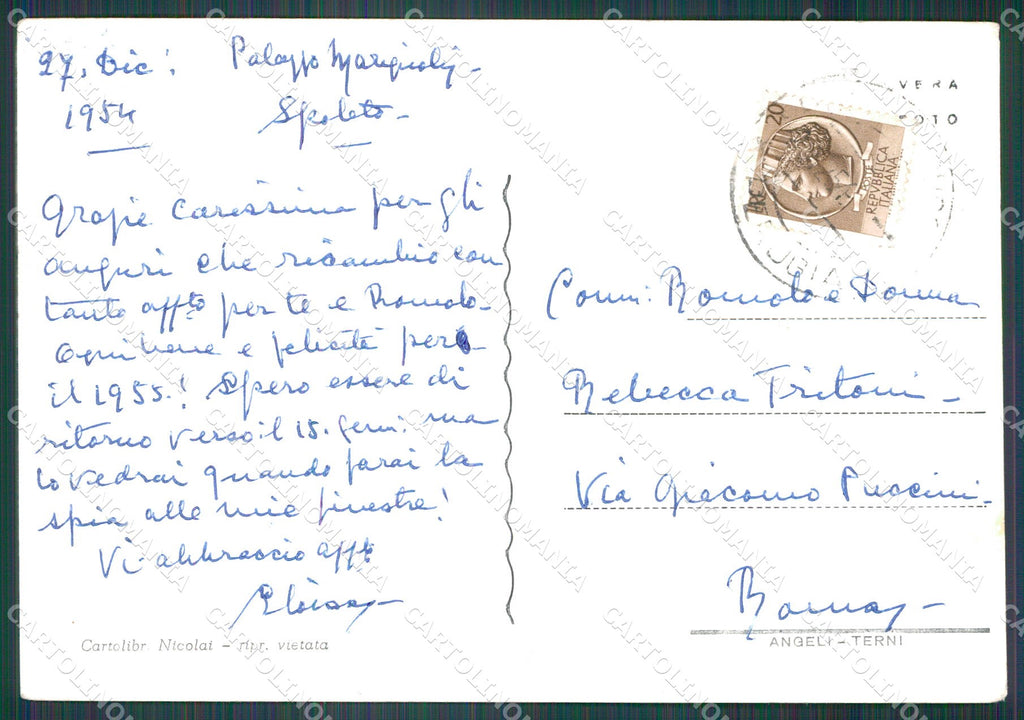 27. Dic: Palazzo Marignoli -
1954 Spoleto -
Grazie carissima per gli
auguri che ricambio con
tanto affto per te e Romolo -
Ogni bene e felicità per
il 1955.! Spero essere di
ritorno verso il 15. genn: ma
lo vedrai quando farai la
spia alle mie finestre!
Vi abbraccio affte
Eloisa -
Cartolibr Nicolai - ripr. vietata
VERA
FOTO
20
REPVBBLICA
ITALIANA
Comm: Romolo e Donna
Rebecca Tritoni -
Via Giacomo Puccini -
Roma -
ANGELI - TERNI
CARTOLINOMANIA